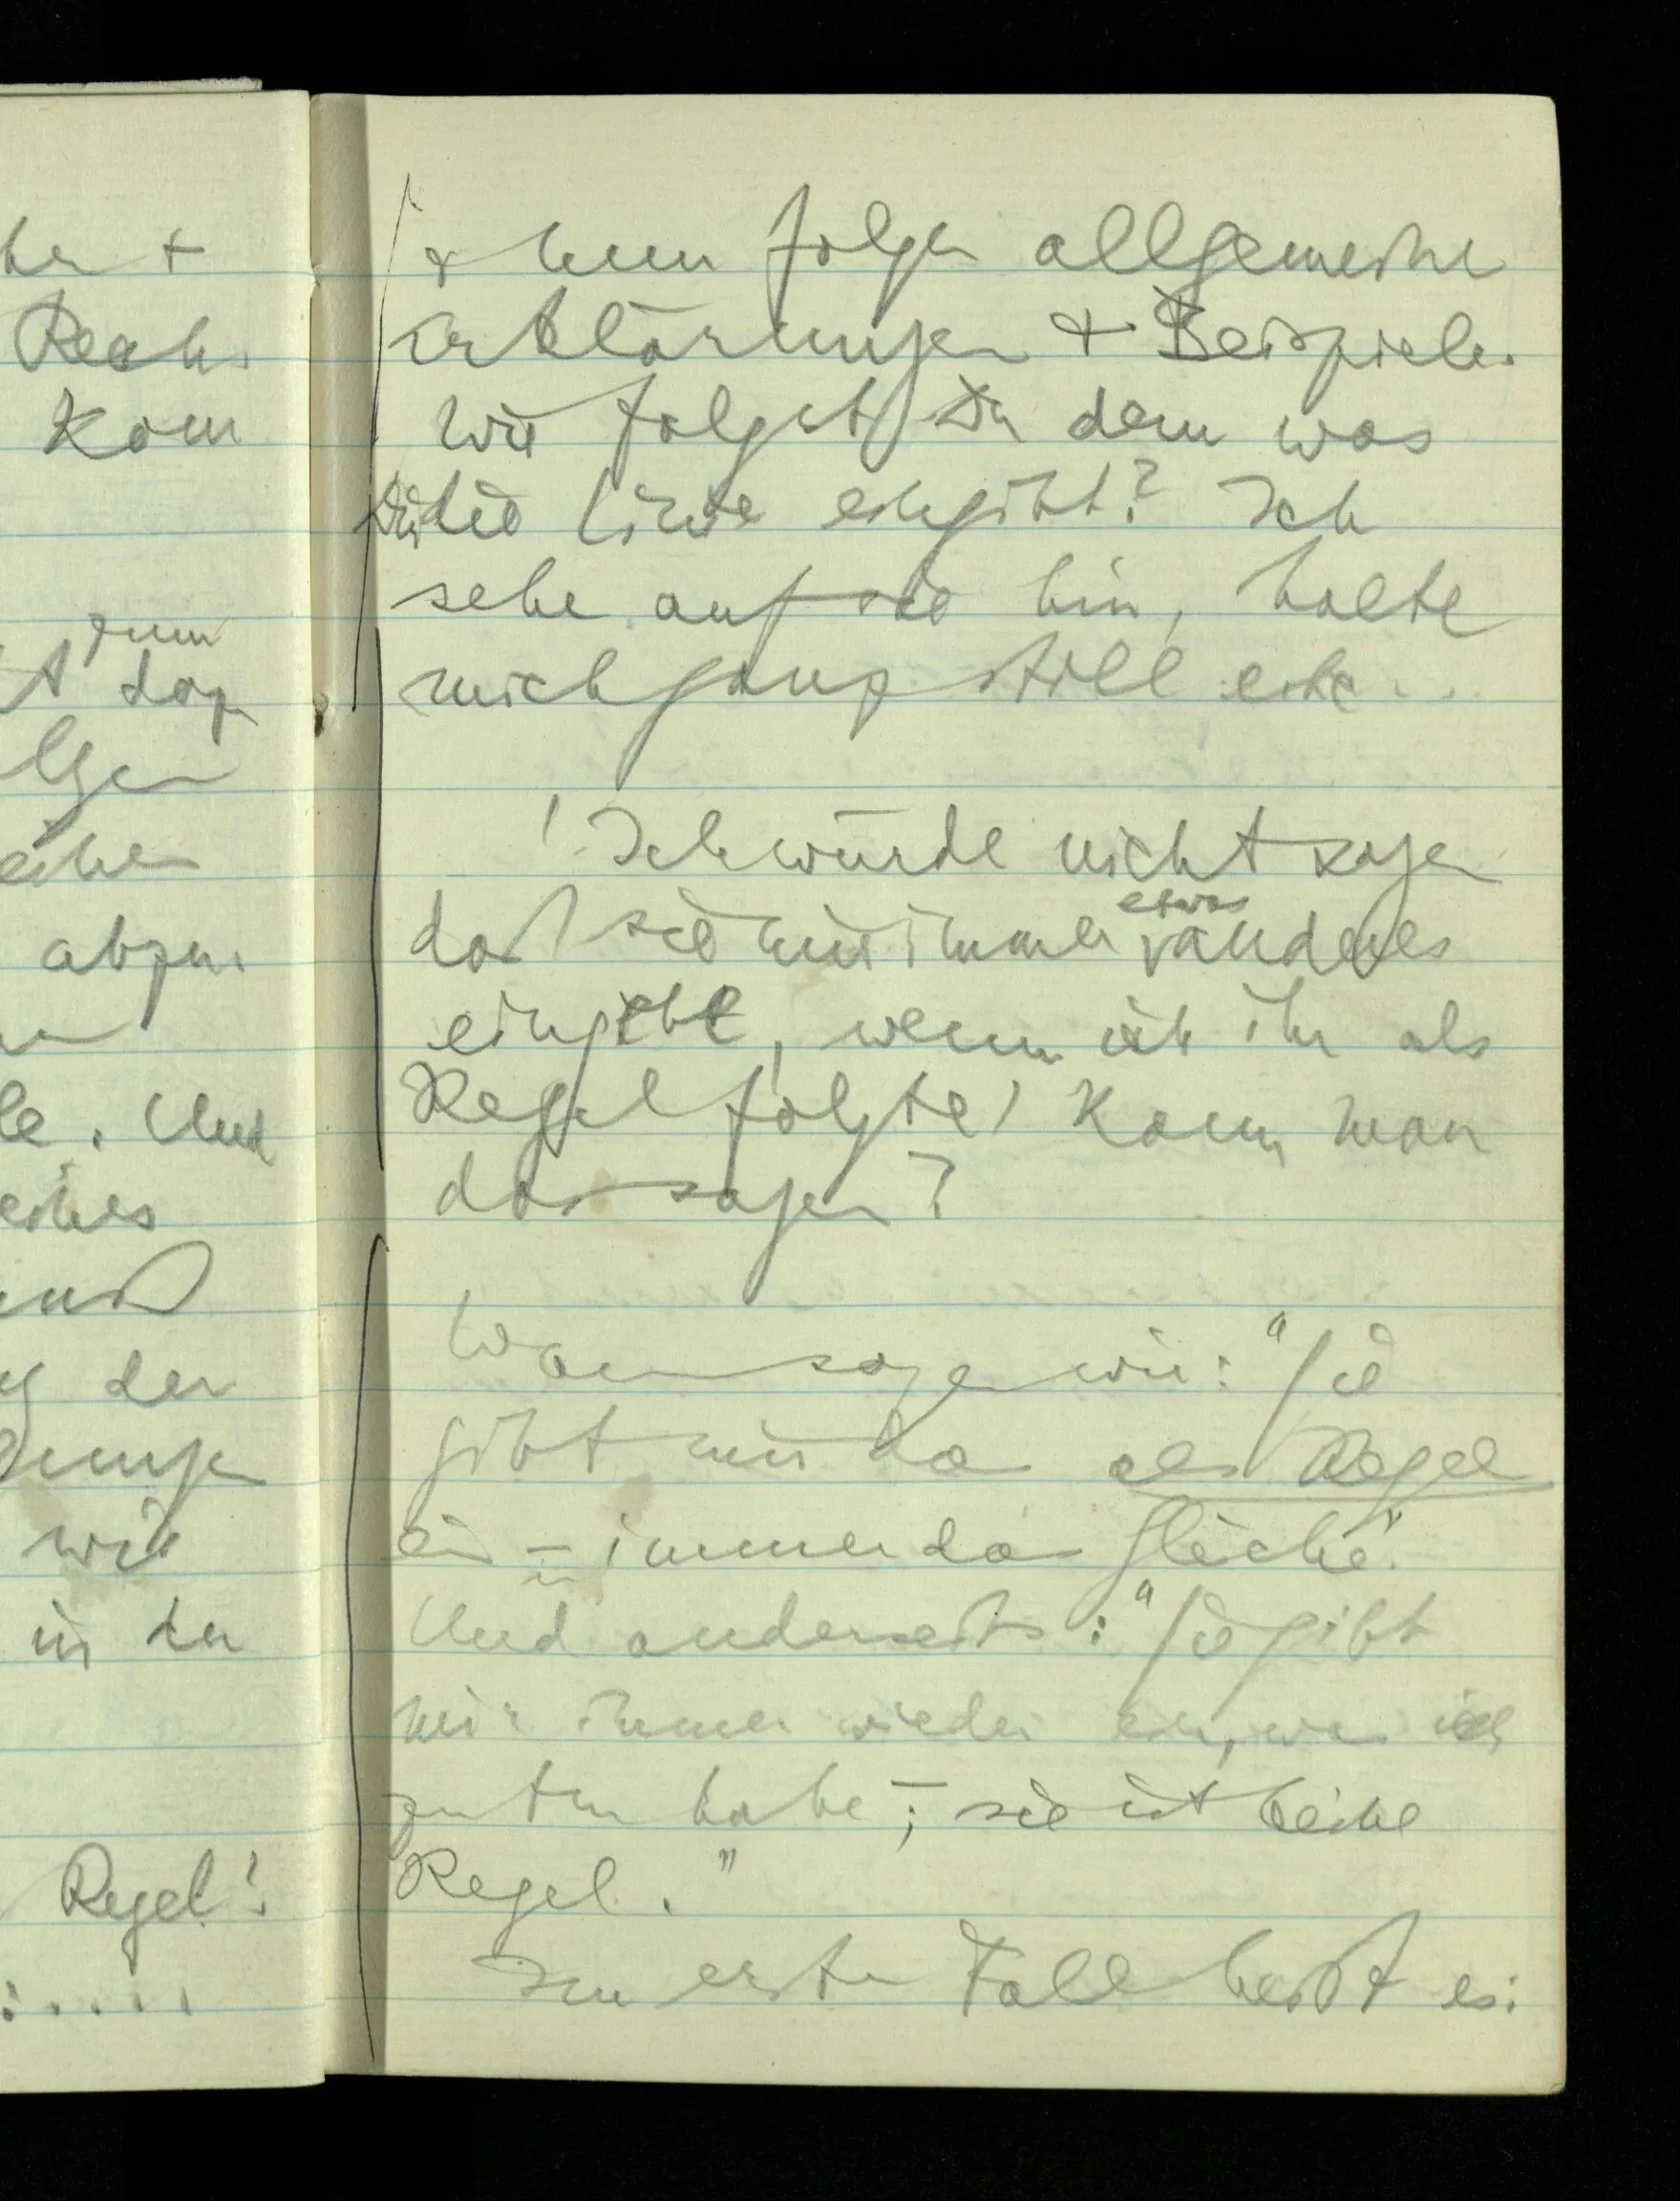 her +
Rech-
Kom
zum
daz
lgen
eihe
abzu-
le. Und
eines
muß
der
wie
in der
Regel!
: . . . . .
& nun folgen allgemeine
Erklärungen + Beispiele.
Wie folgst Du dem was
Dir die Linie eingibt? Ich
sehe auf sie hin, halte
mich ganz still etc..
! Ich würde nicht sagen
daß sie mir immer etwas anderes
eingibt, wenn ich ihr als
Regel folgte! Kann man
das sagen?
Wann sagen wir: "Sie
gibt mir das als Regel
ein – immer das Gleiche".
Und anderseits: "Sie gibt
mir immer wieder ein, was ich
zu tun habe –; sie ist keine
Regel."
Im ersten Fall heißt es: